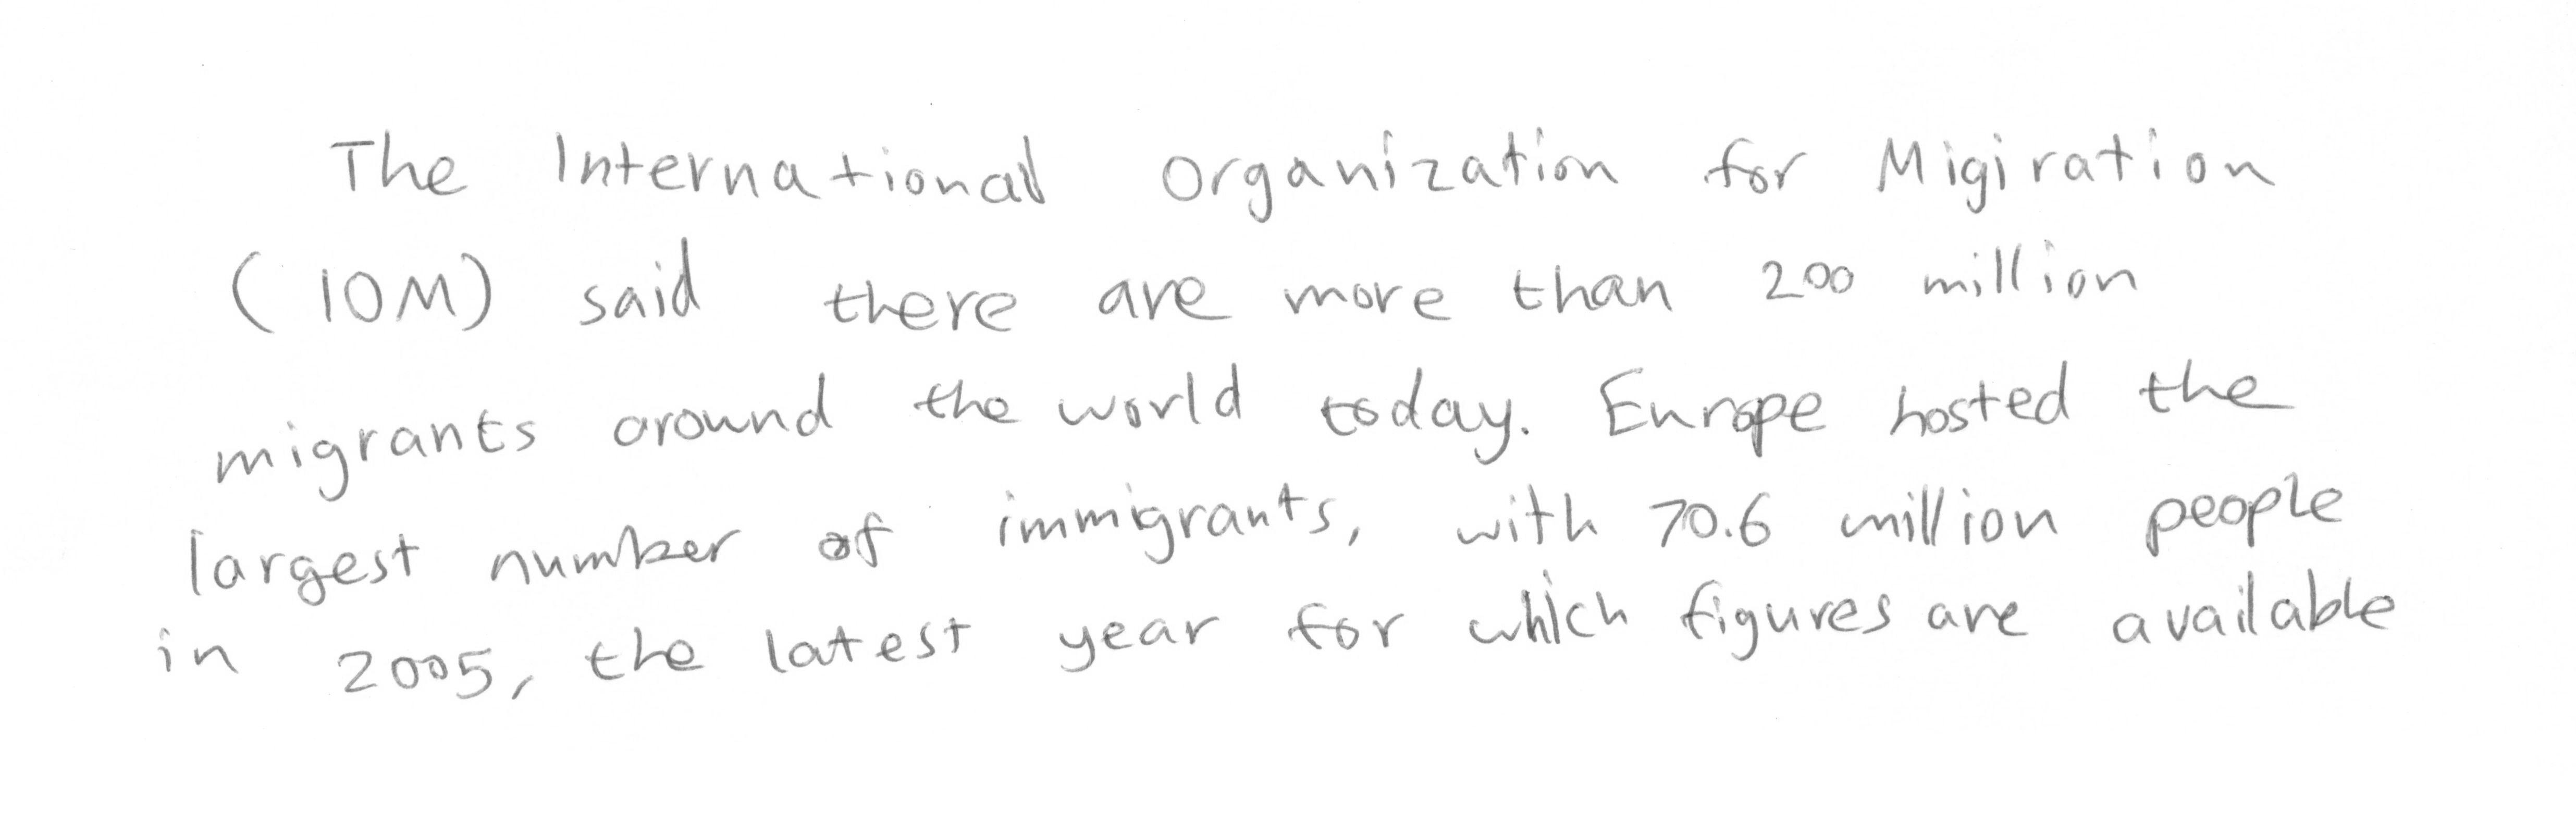 The International Organization for Migiration
(IOM) said there are more than 200 million
migrants around the world today. Europe hosted the
largest number of immigrants, with 70.6 million people
in 2005, the latest year for which figures are available